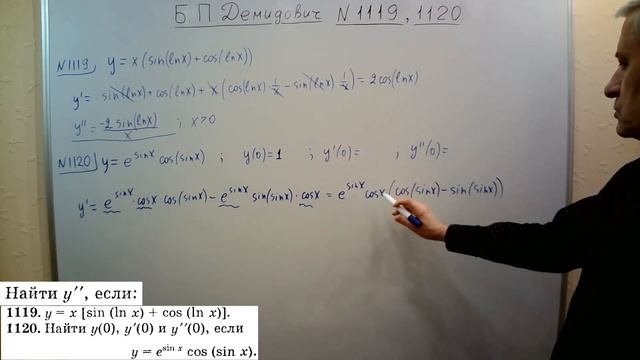 Б. П. Демидович N 1119, 1120
N1119, y = x (sin(lnx) + cos(lnx))
y' = sin(lnx) + cos(lnx) + x (cos(lnx) 1/x − sin(lnx) 1/x) = 2cos(lnx)
y'' = −2 sin(lnx)/x ; x>0
N1120, y = e^sinx cos(sinx) ; y(0)=1 ; y'(0)= ; y''(0)=
y' = e^sinx · cosx · cos(sinx) − e^sinx sin(sinx) · cosx = e^sinx cosx (cos(sinx) − sin(sinx))
Найти y'', если:
1119. y = x [sin (ln x) + cos (ln x)].
1120. Найти y(0), y'(0) и y''(0), если
y = e^sin x cos (sin x).